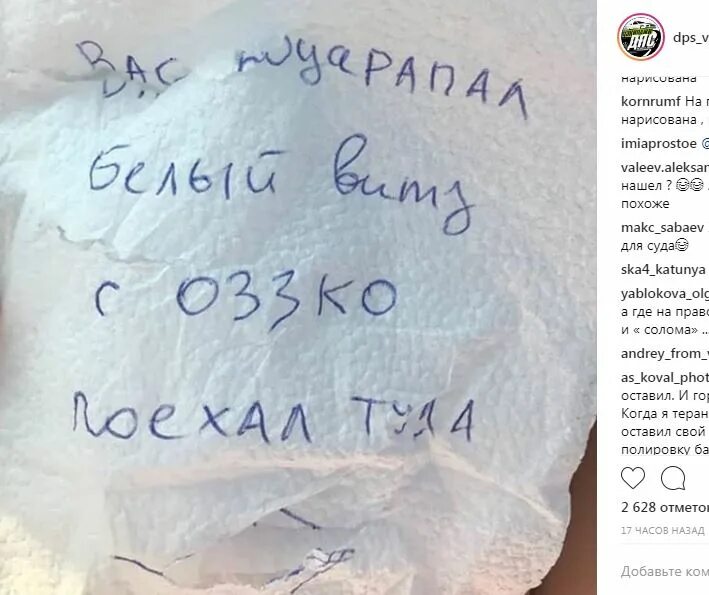 ВАС поцАРАПАЛ
белый витз
с 033КО
ПОЕХАЛ ТУДА
dps_v
нарисована
kornrumf На п
нарисована ,
imiaprostoe @
valeev.aleksan
нашел ? 😂😂 .
похоже
makc_sabaev
для суда😂
ska4_katunya
yablokova_olg
а где на право
и « солома» ..
andrey_from_v
as_koval_phot
оставил. И гор
Когда я теран
оставил свой
полировку ба
2 628 отметок
17 ЧАСОВ НАЗАД
Добавьте ком